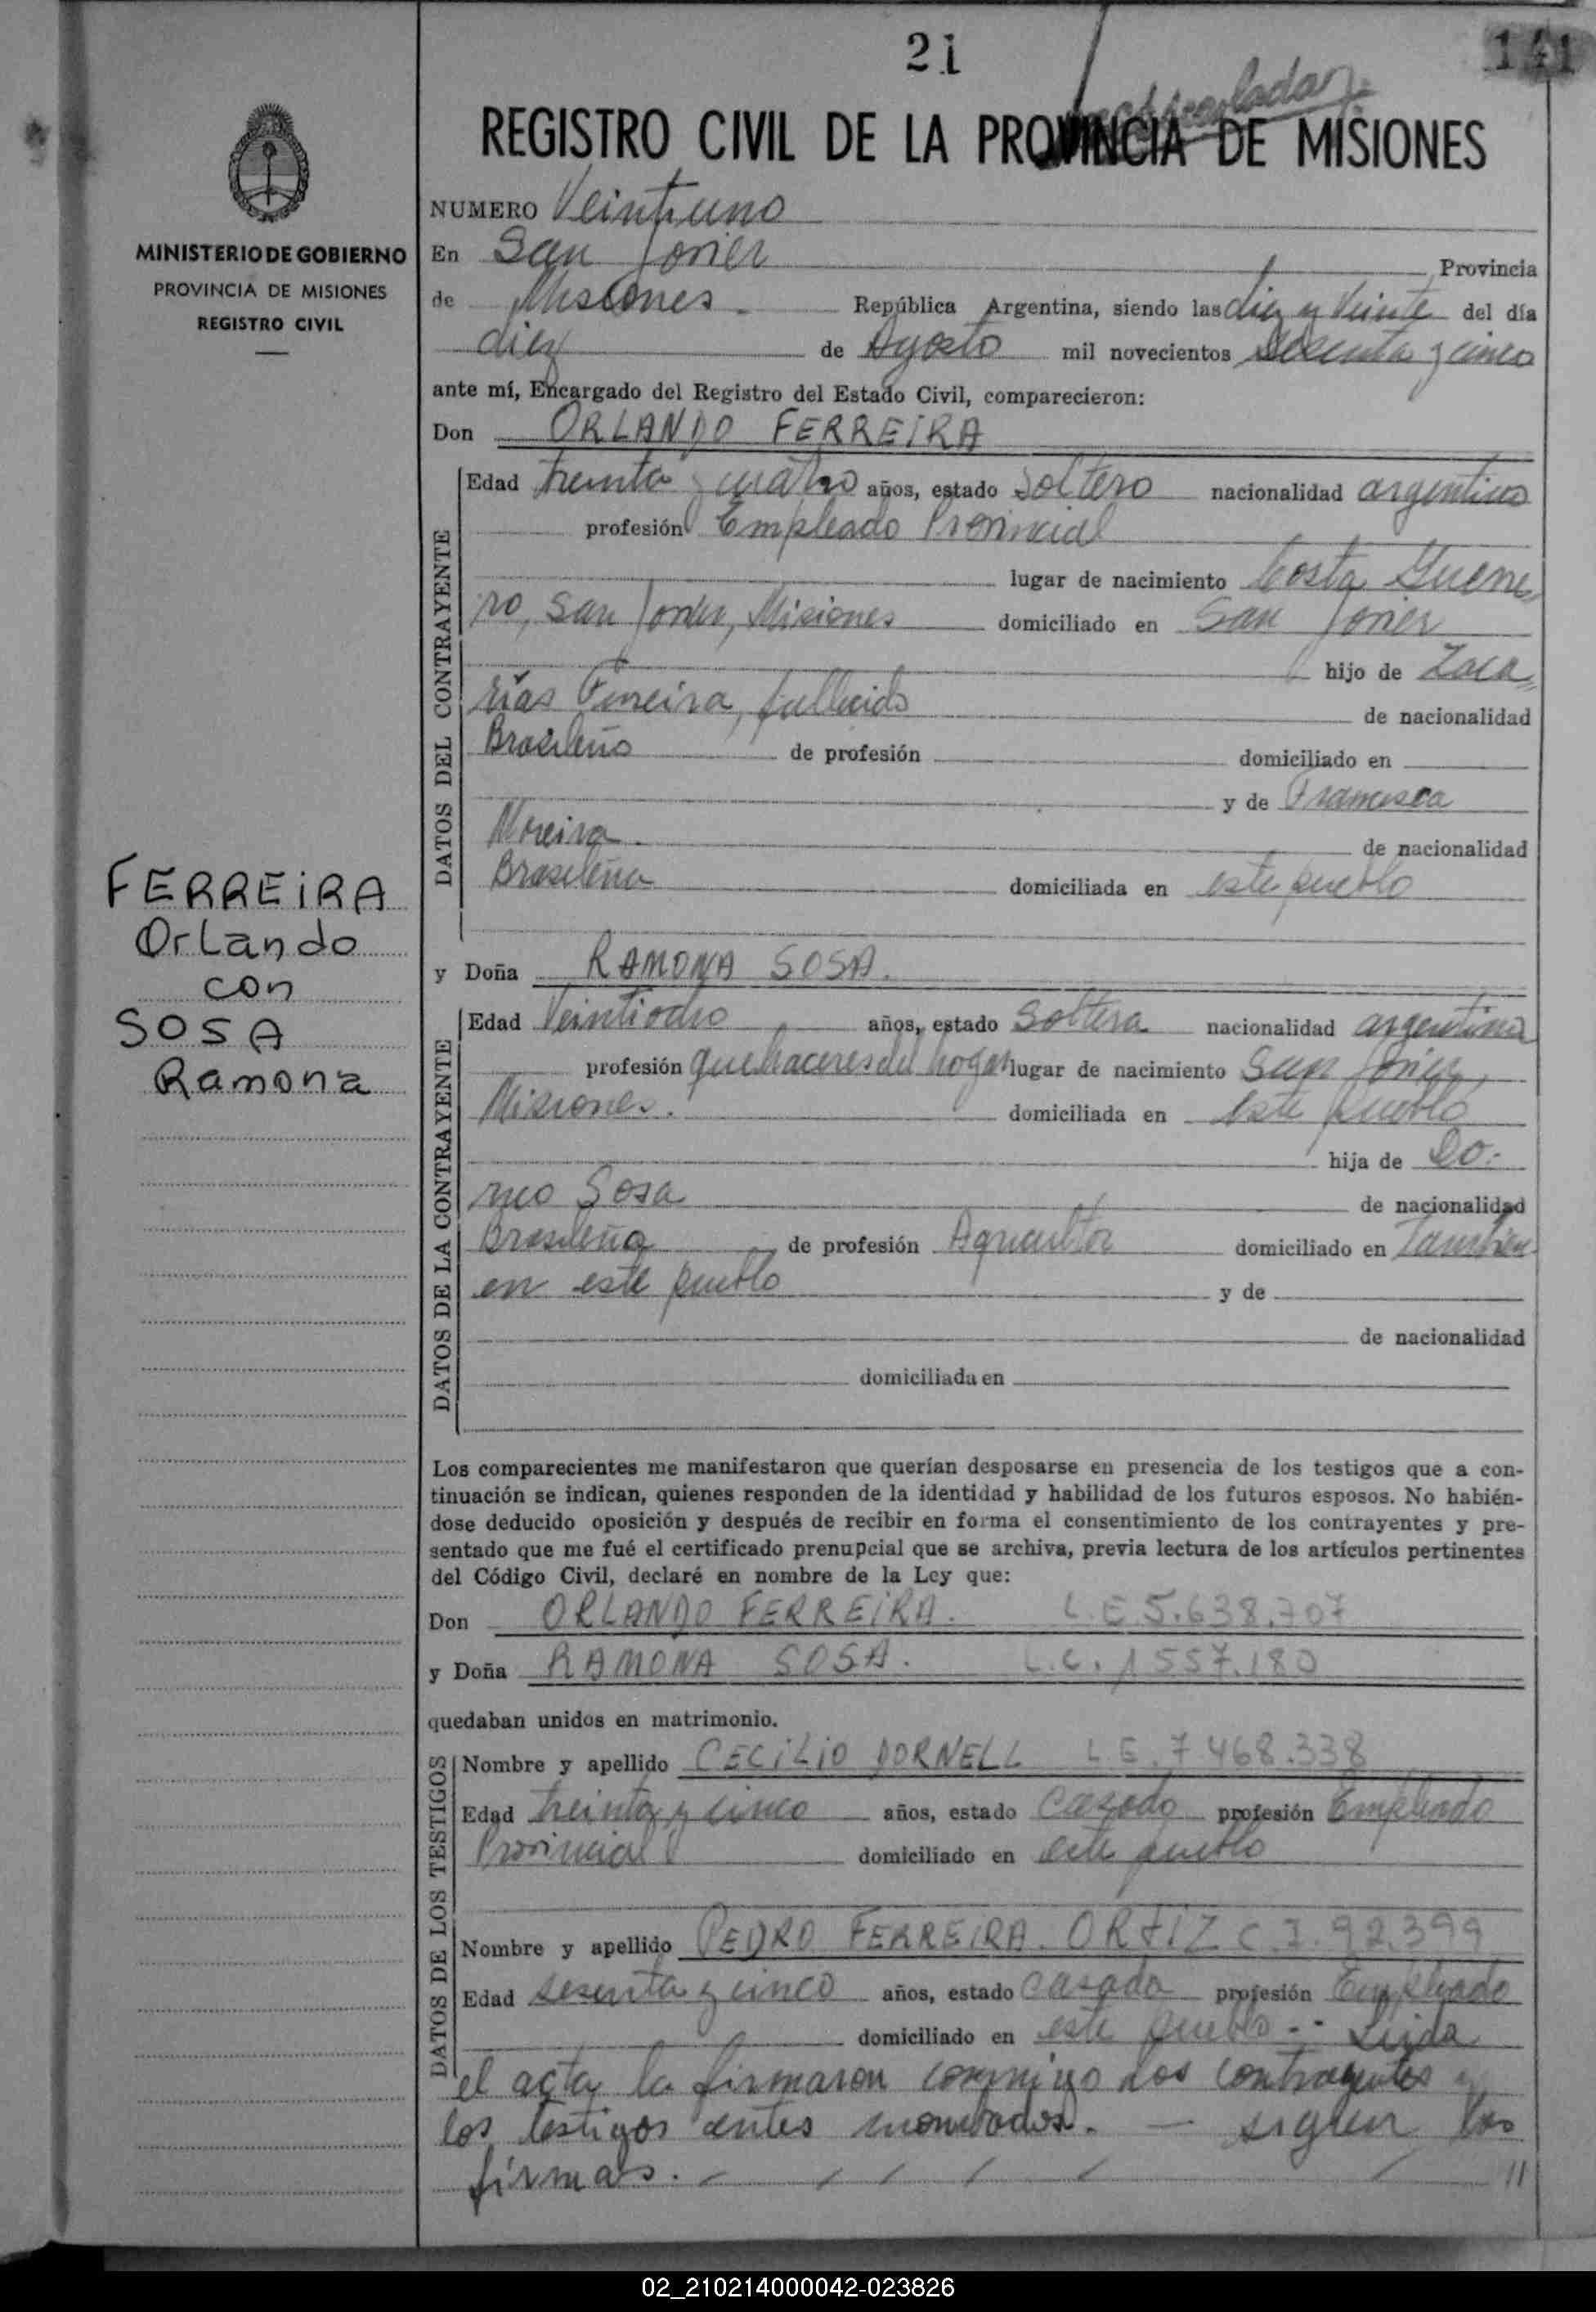 21
141
REGISTRO CIVIL DE LA PROVINCIA DE MISIONES
MINISTERIO DE GOBIERNO
PROVINCIA DE MISIONES
REGISTRO CIVIL
NUMERO Veintiuno
En San Javier Provincia
de Misiones República Argentina, siendo las diez y Veinte del día
diez de Agosto mil novecientos sesenta y cinco
ante mí, Encargado del Registro del Estado Civil, comparecieron:
Don ORLANDO FERREIRA
DATOS DEL CONTRAYENTE
Edad treinta y cuatro años, estado Soltero nacionalidad argentino
profesión Empleado Provincial
lugar de nacimiento Costa Guerre
ro, San Javier, Misiones domiciliado en San Javier
hijo de Zaca
rías Ferreira, fallecido de nacionalidad
Brasileño de profesión domiciliado en
y de Francisca
Moreira de nacionalidad
Brasileña domiciliada en este pueblo
FERREIRA
Orlando
con
SOSA
Ramona
y Doña RAMONA SOSA.
DATOS DE LA CONTRAYENTE
Edad Veintiocho años, estado Soltera nacionalidad argentina
profesión quehaceres del hogar lugar de nacimiento San Javier,
Misiones. domiciliada en este pueblo
hija de
Sosa de nacionalidad
Brasileña de profesión Agricultor domiciliado en También
en este pueblo y de
de nacionalidad
domiciliada en
Los comparecientes me manifestaron que querían desposarse en presencia de los testigos que a con-
tinuación se indican, quienes responden de la identidad y habilidad de los futuros esposos. No habién-
dose deducido oposición y después de recibir en forma el consentimiento de los contrayentes y pre-
sentado que me fué el certificado prenupcial que se archiva, previa lectura de los artículos pertinentes
del Código Civil, declaré en nombre de la Ley que:
Don ORLANDO FERREIRA. L.E 5.638.707
y Doña RAMONA SOSA. L.C. 1557.180
quedaban unidos en matrimonio.
DATOS DE LOS TESTIGOS
Nombre y apellido CECILIO DORNELL L.E. 7.468.338
Edad treinta y cinco años, estado Casado profesión Empleado
Provincial domiciliado en este pueblo
Nombre y apellido PEDRO FERREIRA ORTIZ C.I. 92.399
Edad sesenta y cinco años, estado Casado profesión Empleado
domiciliado en este pueblo.- Leida
el acta la firmaron conmigo los contrayentes y
los testigos antes nombrados. - siguen las
firmas. //
02_210214000042-023826